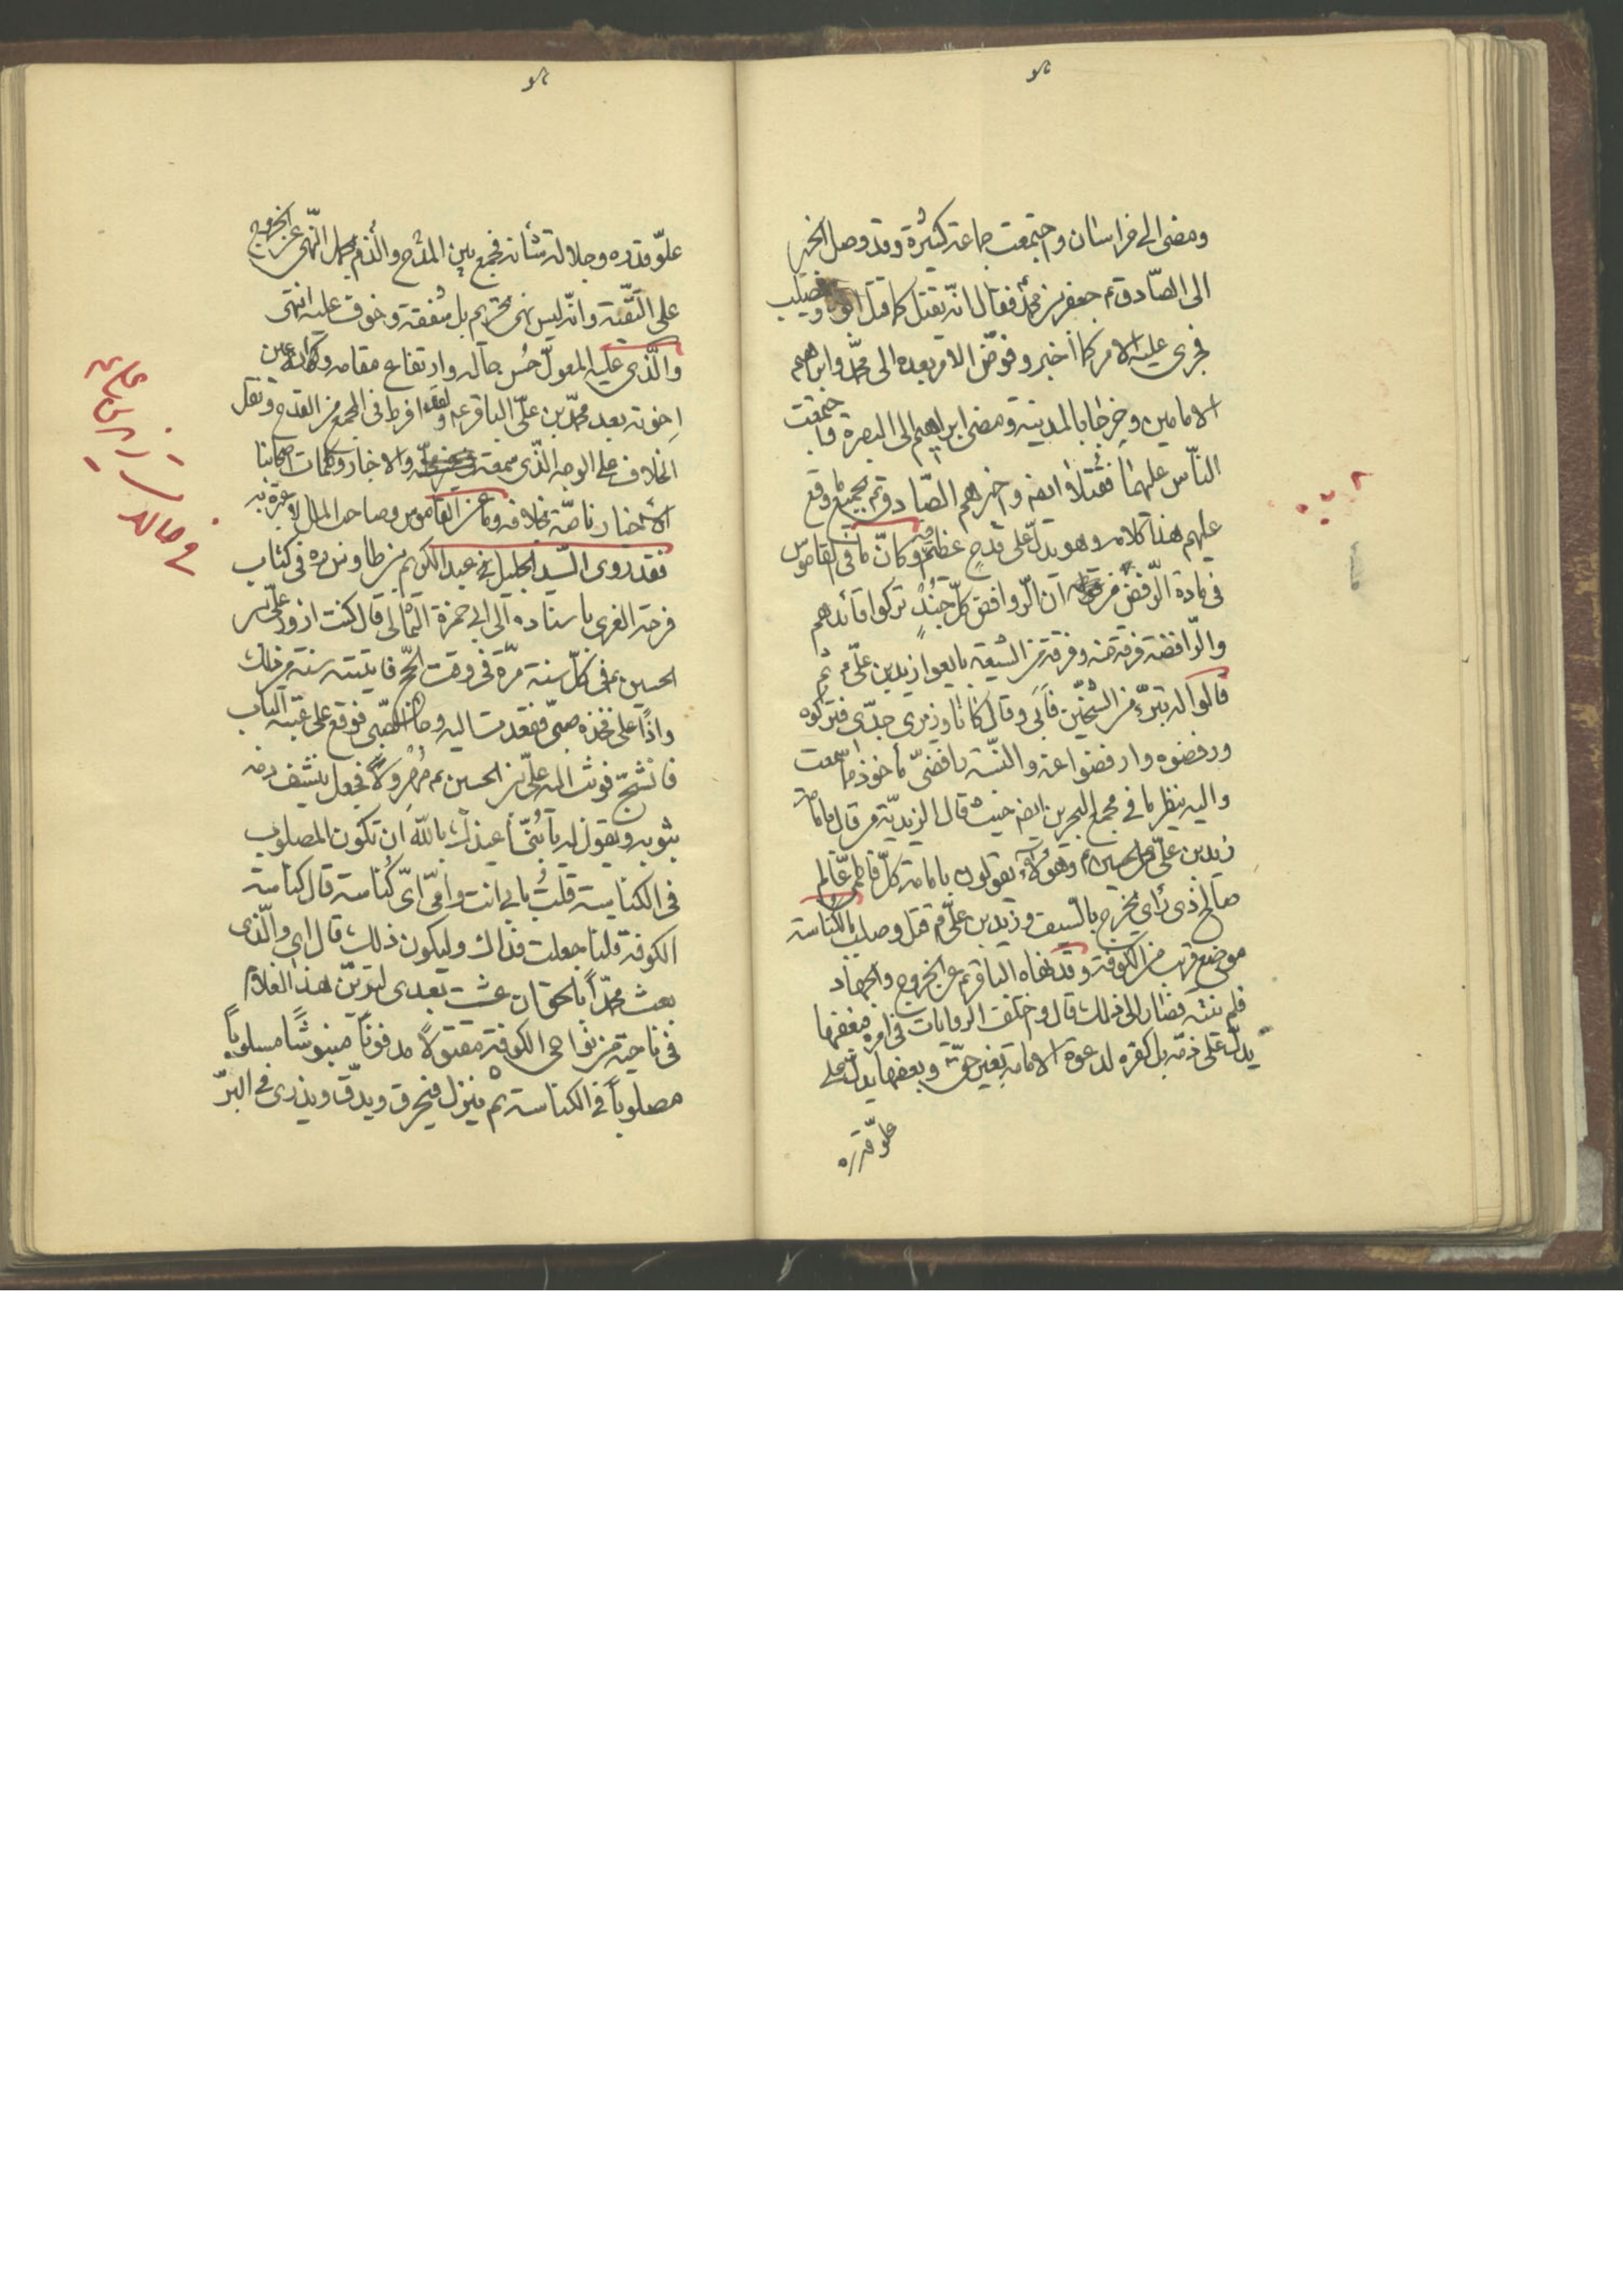 ومضى الى خراسان واجتمعت جماعة كثيرة وقد وصل الخبر
الى الصّادق ع جعفر بن محمّد فقال انّه يقتل كما قتل ابوه ويصلب
فجرى عليه الامر كما اخبر وفوّض الامر بعده الى محمّد وابراهيم
الامامين وخرجا بالمدينة ومضى ابراهيم الى البصرة واجتمعت
النّاس عليهما فقتلا ايضا واخبرهم الصّادق ع بجميع ما وقع
عليهم هذا كلامه وهو يدلّ على قدحٍ عظيم فيه وكانّ ما في القاموس
في مادة الرّفض من انّ الرّوافض كلّ جندٍ تركوا قائدهم
والرّافضة فرقة منه وفرقة من الشيعة بايعوا زيد بن علىّ ثم
قالوا له تبرّء من الشيخين فأبى وقال كانا وزيرى جدّى فتركوه
ورفضوه وارفضّوا عنه والنّسبة رافضىّ مأخوذ ممّا سمعت
واليه ينظر ما في مجمع البحرين ايضا حيث قال الزيديّة من قال بامامة
زيد بن علىّ بن الحسين ع وهؤلاء يقولون بامامة كلّ فاطمىّ عالم
صالح ذى رأى يخرج بالسّيف وزيد بن علىّ ع قتل وصلب بالكناسة
موضع قريب من الكوفة وقد نهاه الباقر ع عن الخروج والجهاد
فلم ينته فصار الى ذلك قال واختلفت الروايات في امره فبعضها
يدلّ على ذمّه بل كفره لدعوة الامامة بغير حقّ وبعضها يدلّ على
علوّ قدره
علوّ قدره وجلالة شأنه فجمع بين المدح والذم بحمل النّهى عن الخروج
على التقيّة وانّه ليس نهى تحريم بل شفقة وخوف عليه انتهى
والّذى عليه المعوّل حُسن حاله وارتفاع مقامه وكان عين
اخوته بعد محمّد بن علىّ الباقر ع ولقد افرط في المجمع من القدح ونقل
الخلاف على الوجه الّذى سمعته والاخبار وكلمات اصحابنا
الأخيار ناصّة بخلافه وما عن القاموس وصاحب الملل لا عبرة به
فقد روى السّيد الجليل عبد الكريم بن طاوس ره في كتاب
فرحة الغرى باسناده الى ابى حمزة الثمالى قال كنت ازور علىّ بن
الحسين ع في كلّ سنة مرّة في وقت الحجّ فاتيته سنة من ذلك
واذاً على فخذه صبىّ فقعدت اليه وجاء الصّبى فوقع على عتبة الباب
فانْشجّ فوثب اليه علىّ بن الحسين ع مُهَروِلاً فجعل ينشف دمه
بثوبه ويقول له يا بُنىّ اعيذك بالله ان تكون المصلوب
في الكناسة قلتُ بابى انت وامّى اىّ كُناسة قال كناسة
الكوفة قلنا جعلت فداك وليكون ذلك قال اى والّذى
بعث محمّداً بالحق ان عشت بعدى لترينّ هذا الغلام
في ناحية من نواحى الكوفة مقتولاً مدفوناً منبوشاً مسلوباً
مصلوباً في الكناسة ثم ينزل فيحرق ويدقّ ويذرى في البرّ
في حال زيد بن على